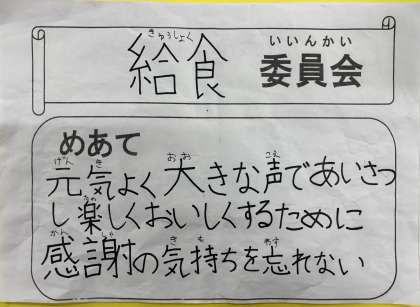 きゅうしょく いいんかい
給食 委員会
めあて
げん き おお こえ
元気よく大きな声であいさつ
たの
し楽しくおいしくするために
かん しゃ き も わす
感謝の気持ちを忘れない